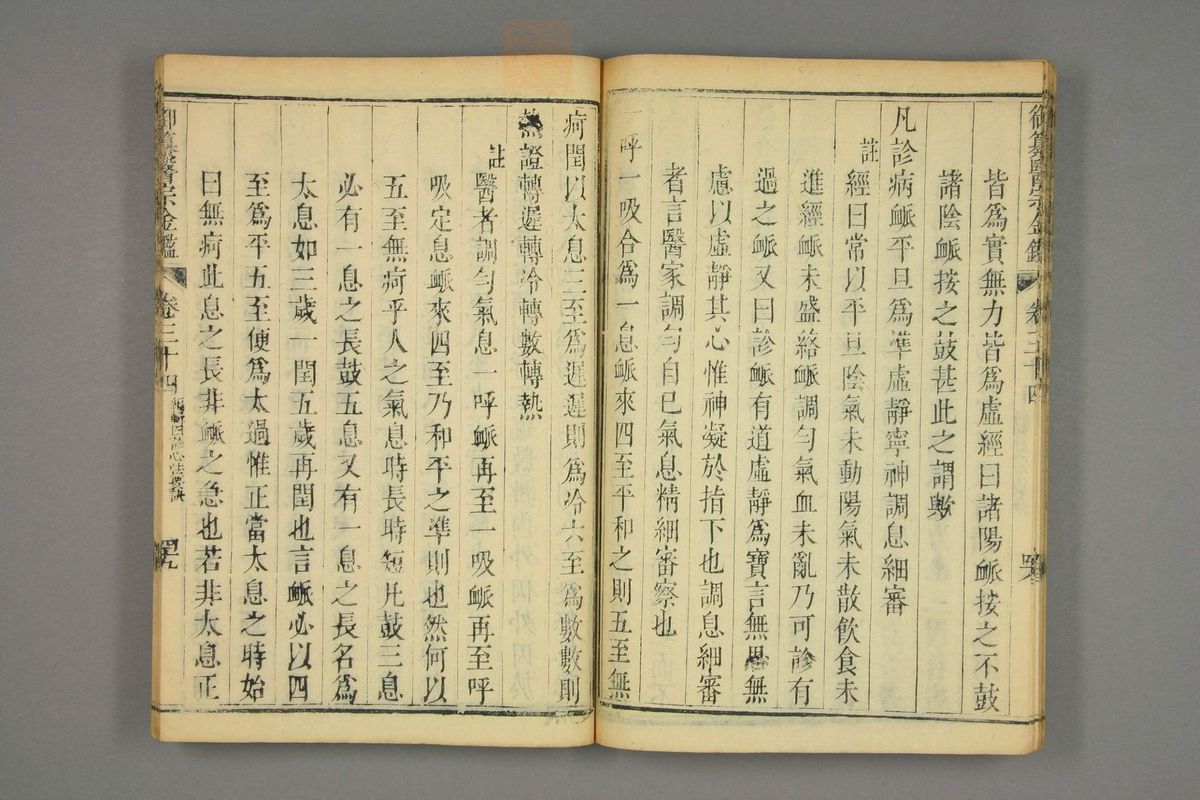 御纂醫宗金鑑 卷三十四
皆爲實無力皆爲虛經曰諸陽脈按之不鼓
諸陰脈按之鼓甚此之謂歟
凡診病脈平旦爲準虛靜寧神調息細審
註
經曰常以平旦陰氣未動陽氣未散飲食未
進經脈未盛絡脈調勻氣血未亂乃可診有
過之脈又曰診脈有道虛靜爲寶言無思無
慮以虛靜其心惟神凝於指下也調息細審
者言醫家調勻自已氣息精細審察也
一呼一吸合爲一息脈來四至平和之則五至無
疴閏以太息三至爲遲遲則爲冷六至爲數數則
熱證轉遲轉冷轉數轉熱
註
醫者調勻氣息一呼脈再至一吸脈再至呼
吸定息脈來四至乃和平之準則也然何以
五至無疴乎人之氣息時長時短凡鼓三息
必有一息之長鼓五息又有一息之長名爲
太息如三歲一閏五歲再閏也言脈必以四
至爲平五至便爲太過惟正當太息之時始
曰無疴此息之長非脈之急也若非太息正
御纂醫宗金鑑 卷三十四 編輯四診心法要訣